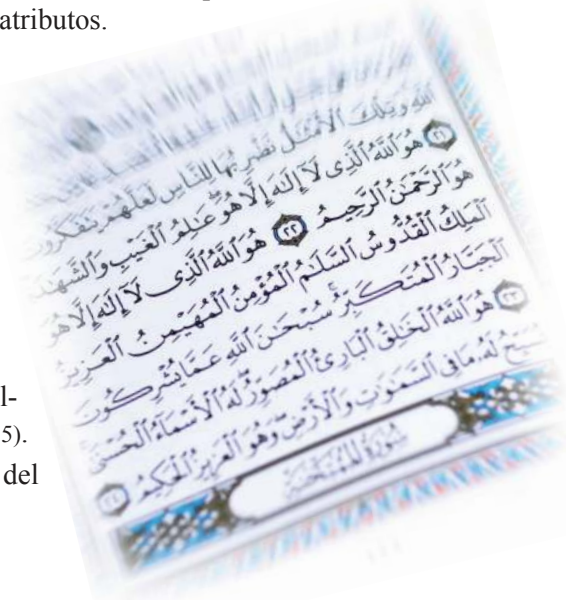 atributos.
ٱللَّهِ وَتِلْكَ ٱلْأَمْثَٰلُ نَضْرِبُهَا لِلنَّاسِ لَعَلَّهُمْ يَتَفَكَّرُونَ
٢١ هُوَ ٱللَّهُ ٱلَّذِى لَآ إِلَٰهَ إِلَّا هُوَ عَٰلِمُ ٱلْغَيْبِ وَٱلشَّهَٰدَةِ
هُوَ ٱلرَّحْمَٰنُ ٱلرَّحِيمُ ٢٢ هُوَ ٱللَّهُ ٱلَّذِى لَآ إِلَٰهَ إِلَّا هُوَ
ٱلْمَلِكُ ٱلْقُدُّوسُ ٱلسَّلَٰمُ ٱلْمُؤْمِنُ ٱلْمُهَيْمِنُ ٱلْعَزِيزُ
ٱلْجَبَّارُ ٱلْمُتَكَبِّرُ سُبْحَٰنَ ٱللَّهِ عَمَّا يُشْرِكُونَ
٢٣ هُوَ ٱللَّهُ ٱلْخَٰلِقُ ٱلْبَارِئُ ٱلْمُصَوِّرُ لَهُ ٱلْأَسْمَآءُ ٱلْحُسْنَىٰ
يُسَبِّحُ لَهُۥ مَا فِى ٱلسَّمَٰوَٰتِ وَٱلْأَرْضِ وَهُوَ ٱلْعَزِيزُ ٱلْحَكِيمُ ٢٤
سُورَةُ الْمُمْتَحَنَةِ
l-
5).
del